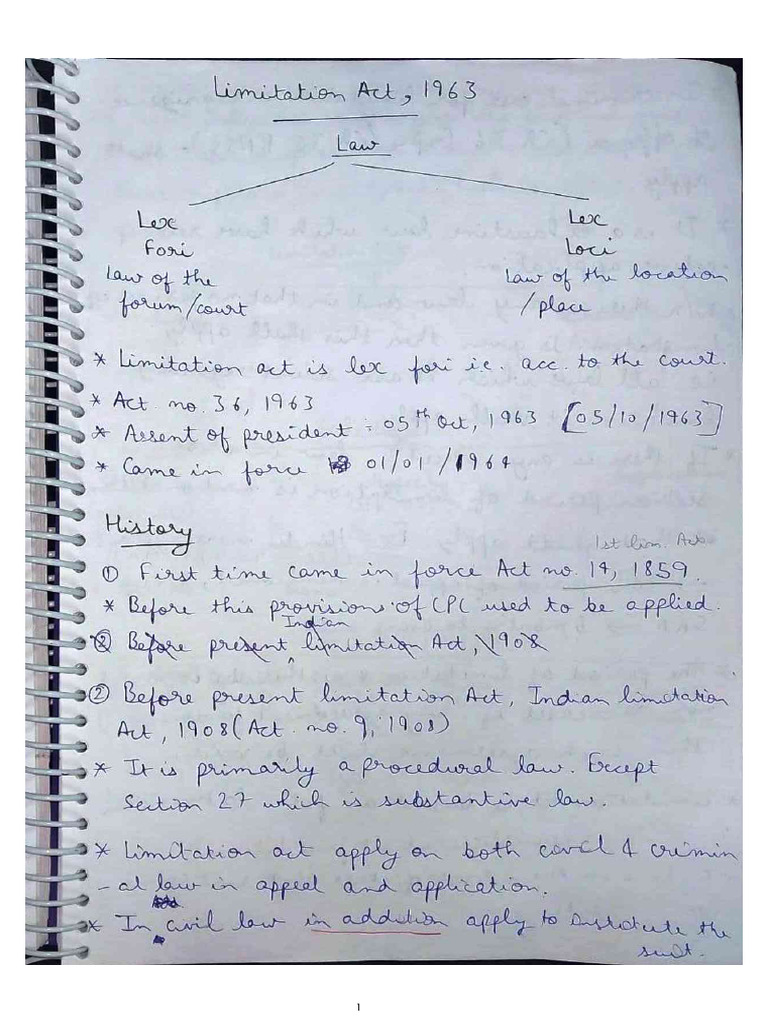 Limitation Act, 1963
Law
Lex Fori
Law of the forum/court
Lex Loci
Law of the location /place
* Limitation act is lex fori i.e. acc. to the court.
* Act no. 36, 1963
* Assent of president = 05th Oct, 1963 [05/10/1963]
* Came in force 01/01/1964
History
1st lim. Act
① First time came in force Act no. 14, 1859.
* Before this provisions of CPC used to be applied.
② Before present Indian limitation Act, 1908
② Before present limitation Act, Indian limitation
Act, 1908 (Act. no. 9, 1908)
* It is primarily a procedural law. Except
Section 27 which is substantive law.
* Limitation act apply on both civil & crimin
-al law in appeal and application.
* In civil law in addition apply to institute the
suit.
1